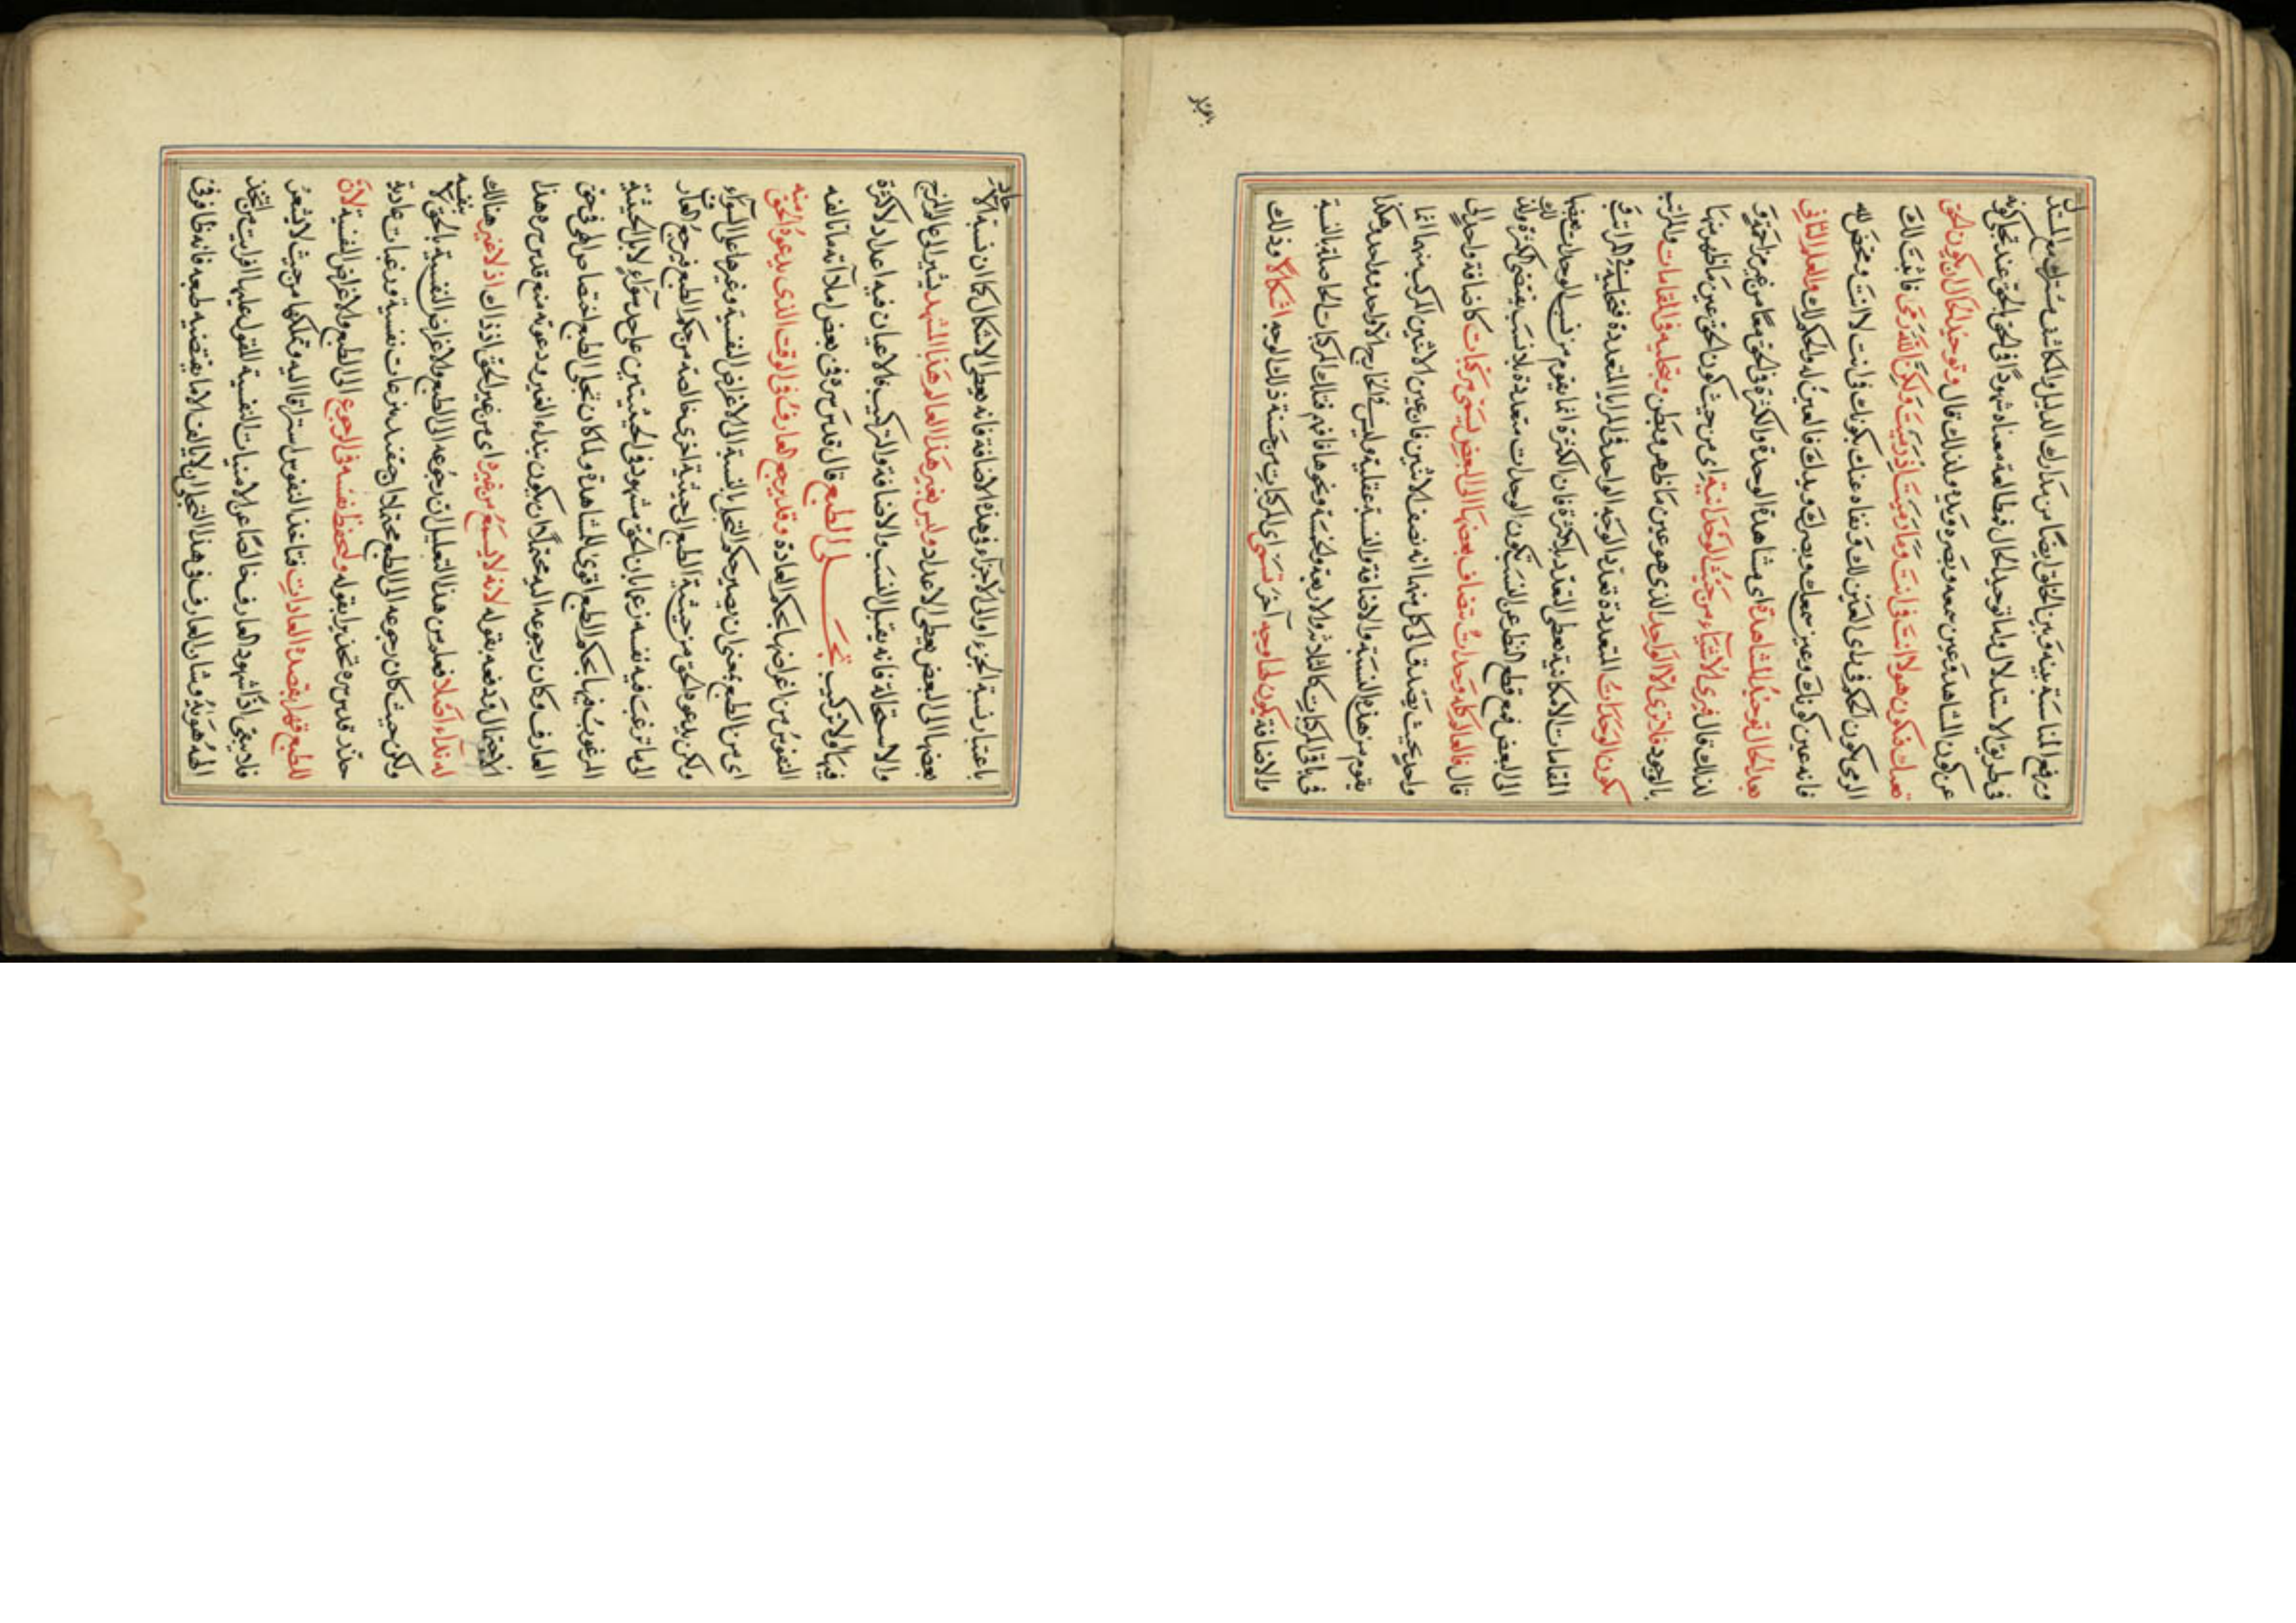 ورفع المناسبة بينه وبين الخلق ايضا من مدارك الدليل والكاشف مشترك مع المستدل
في طريق الاستدلال واما توحيد الحال فطالعة معناه شهودا في الحق عند تجلى كونه
عن كون المشاهد وعين سمعه وبصره ويده ولذلك قال وتوحيد الحال ان يكون الحق
نعتك فيكون هو لا انت في انت وما رميت اذ رميت ولكن الله رمى فاثبت لك
الرمى بكون الحكم في راى العين لك ونفاه عنك بكونك في انت لا انت ومحض لله
فانه عين كونك وعين سمعك وبصرك ويدك فالعين له والحكم لك والعلم الثانى
بعد الحال توحيد المشاهدة اى مشاهدة الوحدة والكثرة في الحق معا من غير مزاحمة و
لذلك قال فيرى الاشياء من حيث الوحدانية اى من حيث كون الحق عين ما ظهر منها
بالوجود فلا ترى الا الواحد الذى هو عين ما ظهر وبطن وبتجليه في المقامات والمراتب
يكون الوحدات المتعددة تعدد الوجه الواحد في المرايا المتعددة فتجليه في المراتب و
المقامات الامكانية يعطى التعدد بلا كثرة فان الكثرة انما يقوم من نسب الوحدات بعضها
الى البعض فمع قطع النظر عن النسب يكون الوحدات متعددة بلا نسب يقتضى الكثرة ولذلك
قال فالعالم كله وحدات تنضاف بعضها الى البعض يسمى مركبات كاضافة واحد الى
واحد بحيث يصدق على كل منهما انه نصف الاثنين فان عين الاثنين المركب منهما انما
يقوم من هذه النسبة والاضافة والنسبة عقلية وليس في الخارج الا واحد وواحد وهكذا
في باقى المركبات كالثلاثة والاربعة والخمسة ونحوها فافهم فتلك المركبات الحاصلة بالنسبة
والاضافة يكون لها وجه آخر تسمى اى المركبات من جهة ذلك الوجه اشكالا وذلك
باعتبار
باعتبار نسبة الجزء او الى الاجزاء وهذه الاضافة فانه يعطى الاشكال كما ان نسبة الاحاد
بعضها الى البعض يعطى الاعداد وليس لغير هذا العالم هذا المشهد يشير الى عالم المزج
والاستحالة فانه يقبل النسب والاضافة والتركيب فالاعيان فيه اعداد لا كثرة
فيها ولا تركيب تجلى الطبع قال قدس سره في بعض املائه ما تالفه
النفوس من اغراضها بحكم العادة وقد يرجع العارف في الوقت الذى يدعوه الحق منه
اى من الطبع بمعنى ان يصير حكم التجلى بالنسبة الى الاغراض النفسية وغيرها على السواء
ولكن يدعوه الحق من حيثية الطبع الى حيثية اخرى خالصة من حكم الطبع فيرجع العارف
الى ما ترغب فيه نفسه زعما بان الحق مشهود في الحيثيتين على حد سواء لا بل الحيثية
المرغوب فيها بحكم الطبع اقوى للمشاهدة ولما كان تجلى الطبع اختصاص الهى في حق
العارف وكان رجوعه اليه محتملا ان يكون بنداء الغير ودعوته منع قدس سره هذا
الاحتمال ودفعه بقوله لانه لا يسمع من غيره اى من غير الحق اذ ذاك اذ لا غير هنالك
له نداء اصلا فعلم من هذا التعليل ان رجوعه الى الطبع والاغراض النفسية بالحق لا بنفسه
ولكن حيث كان رجوعه الى الطبع محتملا نزعات نفسية ورغبات عادية
حذر قدس سره تحذيرا بقوله وليحفظ نفسه في الرجوع الى الطبع والاغراض النفسية لان
للطبع قهرا يعضده العادات فتاخذ النفوس استراقا اليه وتملكها من حيث لا يشعر
فلا يبقى اذا شهود العارف خالصا عن الامنيات النفسية المقول عليها افرايت من اتخذ
الهه هواه وشان العارف في هذا التجلى ان لا يالف الا ما يقتضيه طبعه فانه في